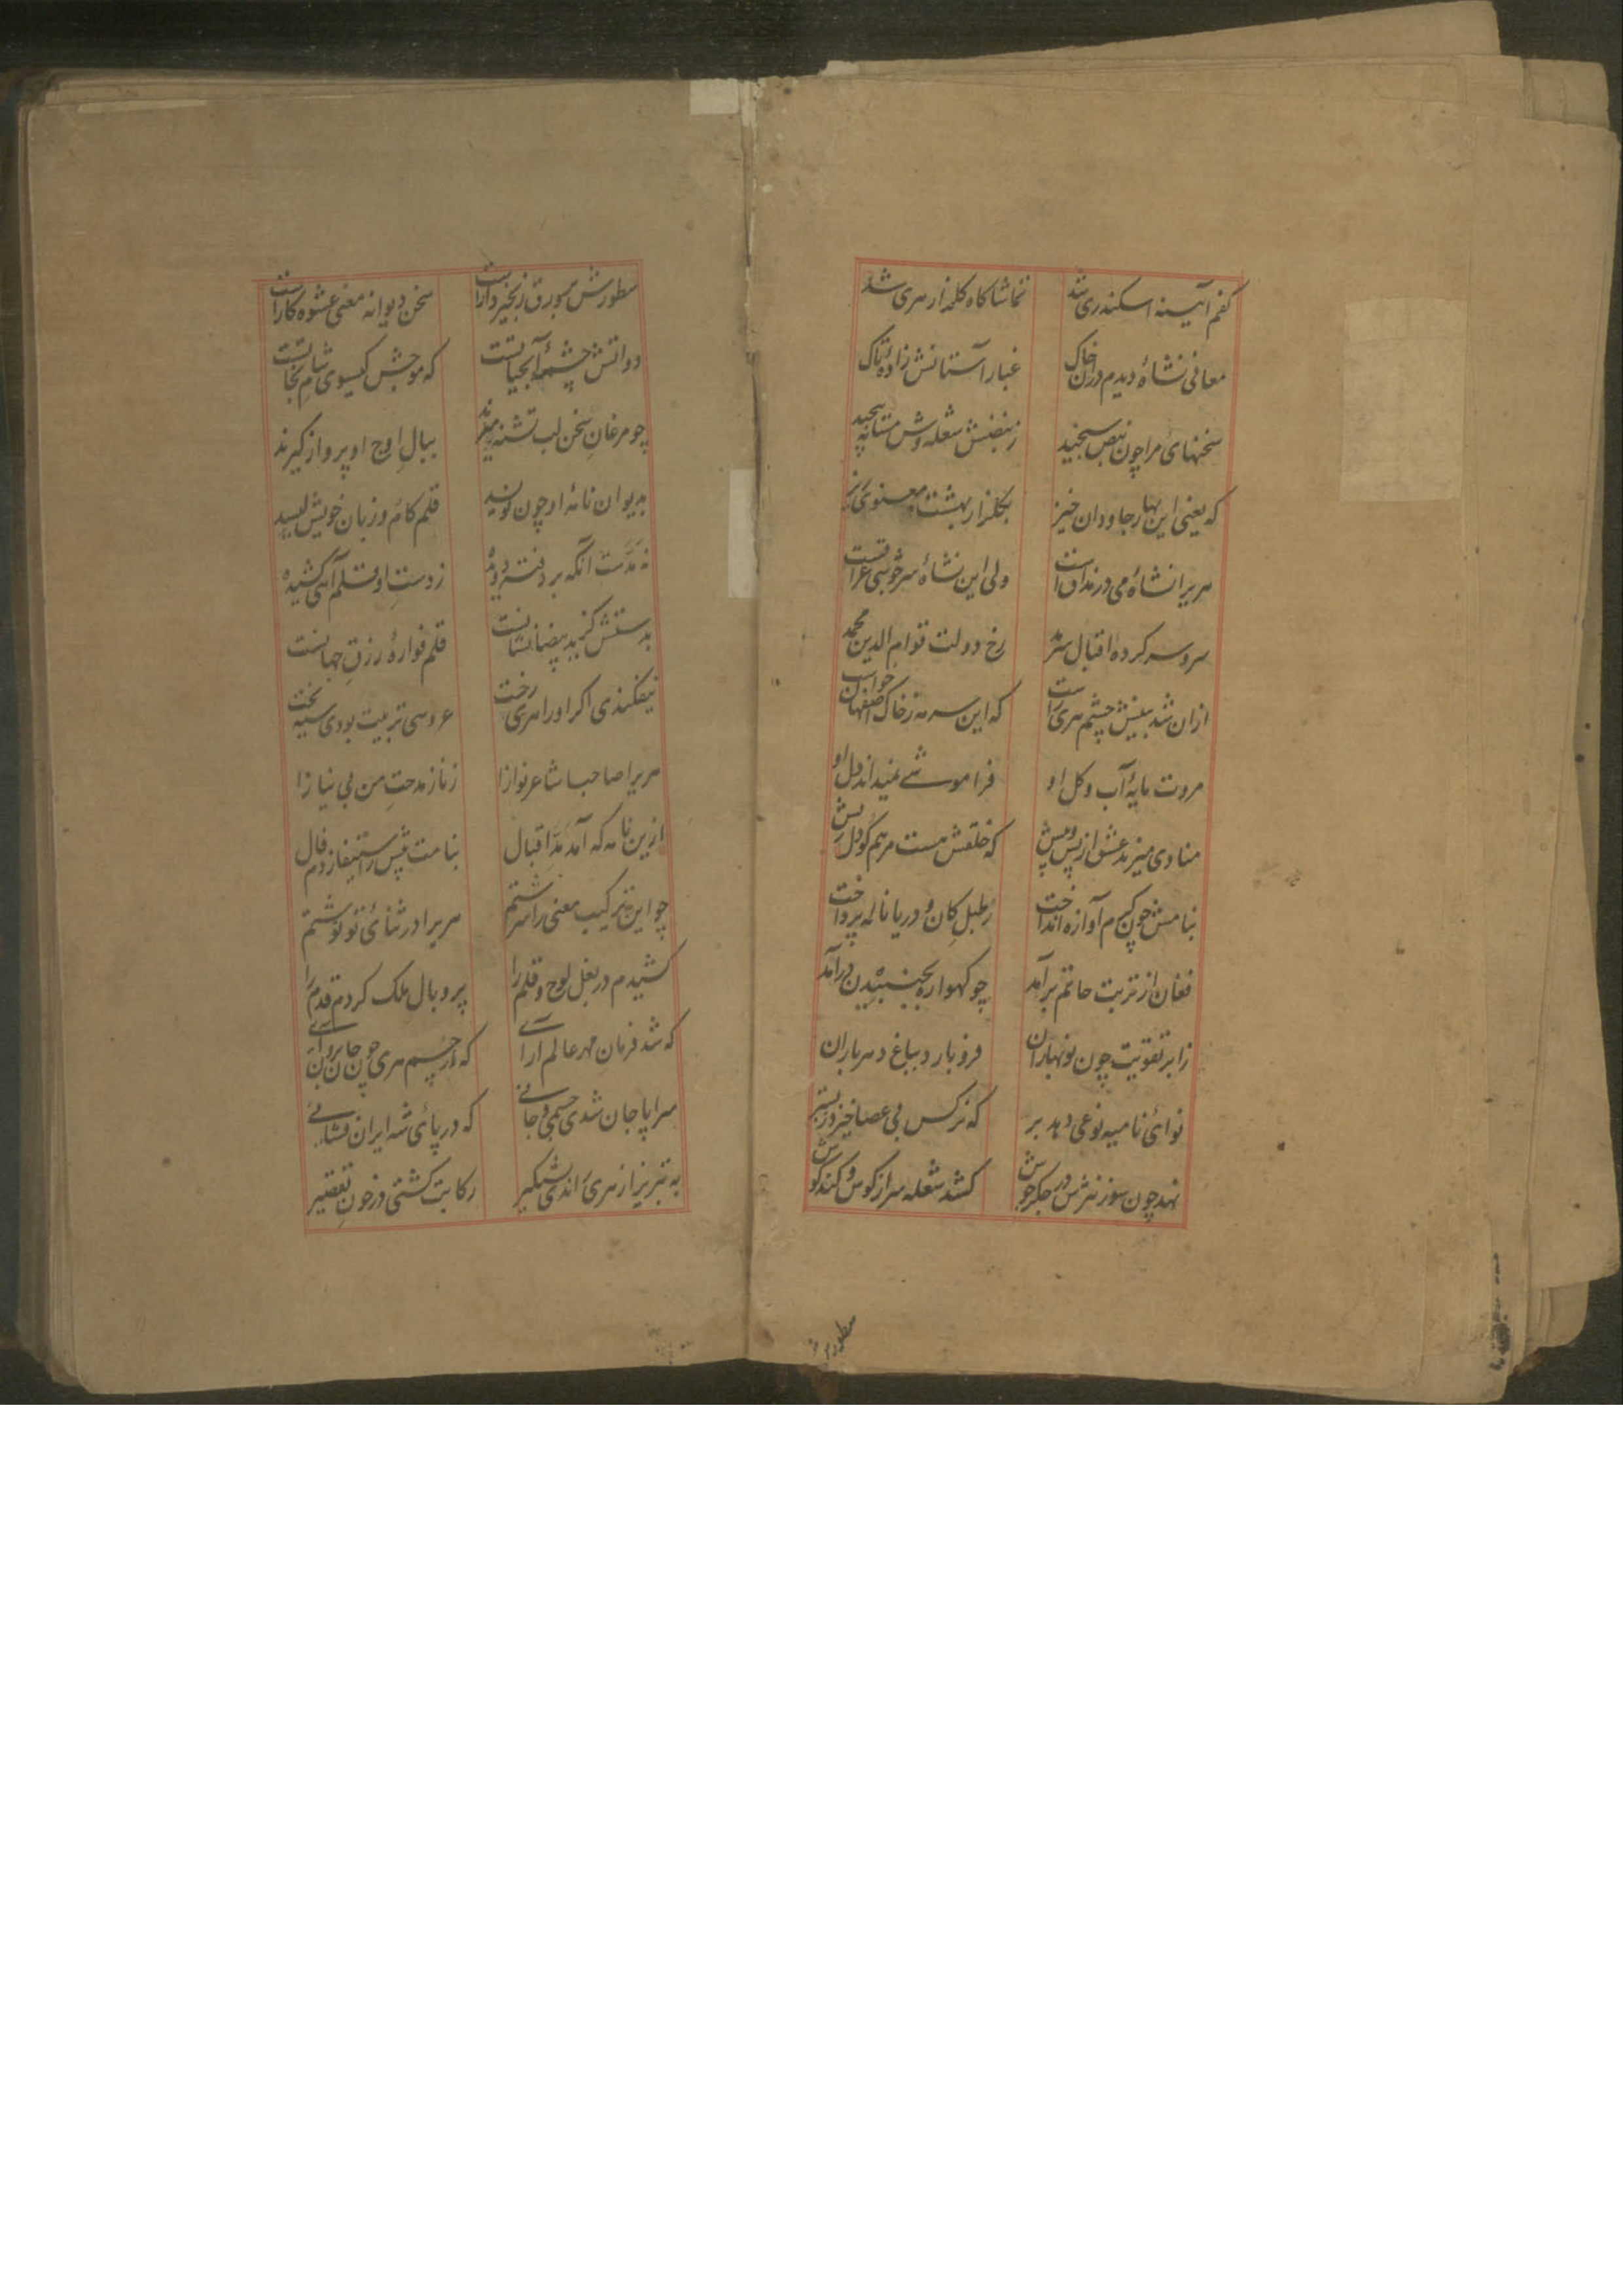 کفم آیینه اسکندری شد تماشا کاه کلزار هری شد
معانی نشاهٔ دیدم دران خاک غبار آستانش زادهٔ تاک
سخنهائ مرا چون نبض سنجید ز نبضش شعله وش مستانه پیچید
که یعنی این بهار جاودان خیز بکلزار بهشت معنوی
هریرا نشاهٔ می در مذاق است ولی این نشاهٔ سرخوشی عراقست
سر و سر کردهٔ اقبال سرمد رخ دولت قوام الدین محمد
ازان شد بینش چشم هری راست که این سرمه ز خاک اصفهان خواست
مروت مایهٔ آب و کل او فراموشے نمیداند دل او
منادی میزند عشق از پس و پیش که خلقش هست مرهم کو دل ریش
بنامش چون کرم آوازه انداخت ز طبل کان و دریا ناله پرداخت
فغان از تربت حاتم برآمد چو کهواره بجنبیدن درآمد
ز ابر تقویت چون نوبهاران فرو بارد بباغ دهر باران
نوائ نامیه نوعی دهد بر که نرکس بی عصا خیزد ز بستر
نهد چون سوز نثرش در جکر جوش کشد شعله سر از کوش و کند کوش
سطورش
سطورش بر ورق زنجیر دار است سخن دیوانه معنی عشوه کار است
دواتش چشمهٔ آبحیاتست که موجش کیسوی شام نجاتست
چو مرغان سخن لب تشنه میرند ببال اوج او پرواز کیرند
بدیوان نامهٔ او چون نویسد قلم کام و زبان خویش لیسد
نه مدست آنکه بر دفتر دویده ز دست او قلم آهی کشیده
بدستش کز ید بیضا نشانست قلم فوارهٔ رزق جهانست
نیفکندی اکر او را هری رخت عروسی تربیت بودی سیه بخت
هریرا صاحبا شاعر نوازا ز ناز مدحت من بی نیازا
ازین نامه که آمد مد اقبال بنامت پیش ازین میزدم فال
چو این ترکیب معنی را سرشتم هریرا در ثنائ تو نوشتم
کشیدم در بغل لوح و قلم را پر و بال ملک کردم قدم را
که شد فرمان مهر عالم آرائے که از جسم هری چون جان برون آئے
سراپا جان شدی جسمی و جانے که در پائ شه ایران فشانے
به تبریز از هری راندی شبکیر رکابت کشتی در خون تقصیر